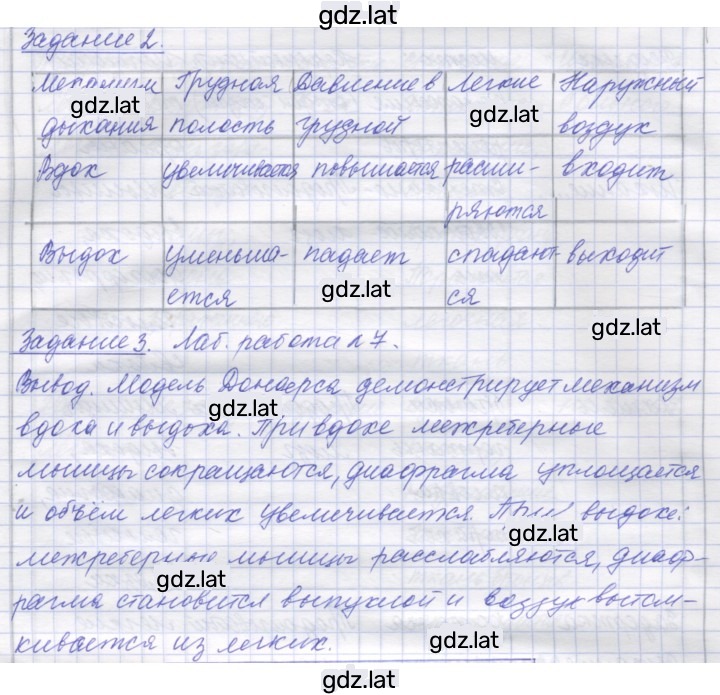 gdz.lat
Задание 2.
Механизм Грудная Давление в Легкие Наружный
gdz.lat gdz.lat
дыхания полость грудной воздух
Вдох увеличивается повышается расши- входит
ряются
Выдох уменьша- падает спадают- выходит
gdz.lat
ется ся
gdz.lat
Задание 3. Лаб. работа №7.
Вывод. Модель Дондерса демонстрирует механизм
gdz.lat
вдоха и выдоха. При вдохе межреберные
мышцы сокращаются, диафрагма уплощается
и объём легких увеличивается. При выдохе:
gdz.lat
межреберные мышцы расслабляются, диаф-
gdz.lat
рагма становится выпуклой и воздух вытал-
кивается из легких.
gdz.lat
gdz.lat